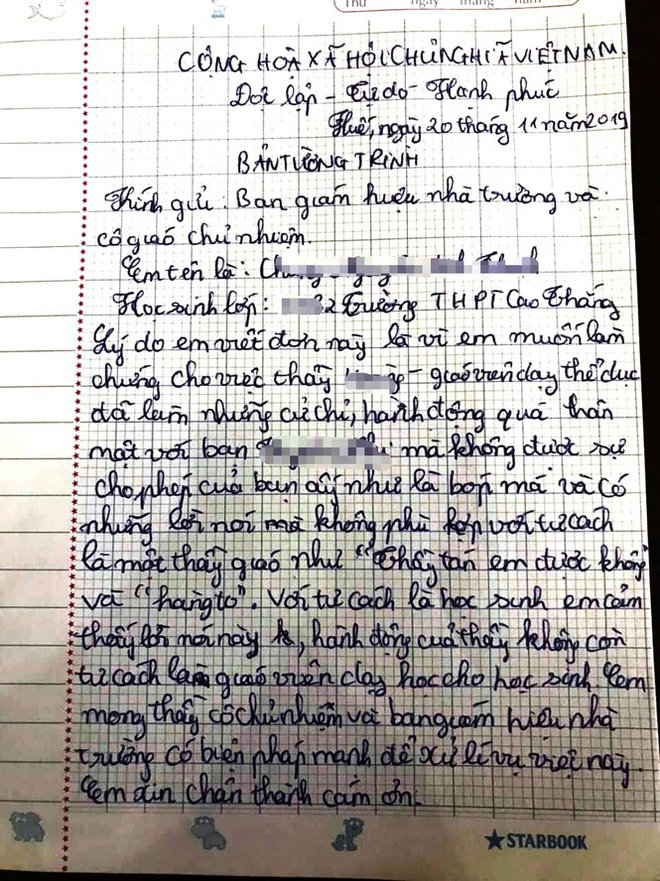 Thứ ngày tháng năm
CỘNG HOÀ XÃ HỘI CHỦ NGHĨA VIỆT NAM.
Độc lập - Tự do - Hạnh phúc
Huế, ngày 20 tháng 11 năm 2019
BẢN TƯỜNG TRÌNH
Kính gửi: Ban giám hiệu nhà trường và
cô giáo chủ nhiệm.
Em tên là:
Học sinh lớp: 2 Trường THPT Cao Thắng
Lý do em viết đơn này là vì em muốn làm
chứng cho việc thầy - giáo viên dạy thể dục
đã làm những cử chỉ, hành động quá thân
mật với bạn mà không được sự
cho phép của bạn ấy như là bóp má và có
những lời nói mà không phù hợp với tư cách
là một thầy giáo như "Thầy tán em được không"
và "hàng to". Với tư cách là học sinh em cảm
thấy lời nói này, hành động của thầy không còn
tư cách làm giáo viên dạy học cho học sinh. Em
mong thầy cô chủ nhiệm và ban giám hiệu nhà
trường có biện pháp mạnh để xử lí vụ việc này.
Em xin chân thành cám ơn.
★STARBOOK